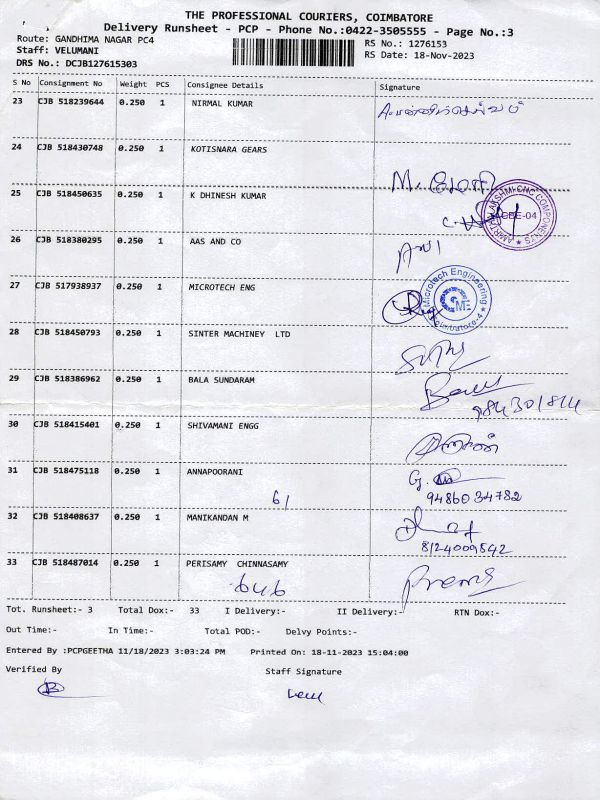 THE PROFESSIONAL COURIERS, COIMBATORE
Delivery Runsheet - PCP - Phone No.:0422-3505555 - Page No.:3
Route: GANDHIMA NAGAR PC4 RS No.: 1276153
Staff: VELUMANI RS Date: 18-Nov-2023
DRS No.: DCJB127615303
S No Consignment No Weight PCS Consignee Details Signature
23 CJB 518239644 0.250 1 NIRMAL KUMAR
24 CJB 518430748 0.250 1 KOTISNARA GEARS
25 CJB 518450635 0.250 1 K DHINESH KUMAR
AMRTHLAKSHMI CNC COMPONENTS CBE-04
26 CJB 518380295 0.250 1 AAS AND CO
27 CJB 517938937 0.250 1 MICROTECH ENG
Microtech Engineering ME Coimbatore-4
28 CJB 518450793 0.250 1 SINTER MACHINEY LTD
29 CJB 518386962 0.250 1 BALA SUNDARAM
30 CJB 518415401 0.250 1 SHIVAMANI ENGG
31 CJB 518475118 0.250 1 ANNAPOORANI G.
61 9486034782
32 CJB 518408637 0.250 1 MANIKANDAN M
8124009542
33 CJB 518487014 0.250 1 PERISAMY CHINNASAMY
646
Tot. Runsheet:- 3 Total Dox:- 33 I Delivery:- II Delivery:- RTN Dox:-
Out Time:- In Time:- Total POD:- Delvy Points:-
Entered By :PCPGEETHA 11/18/2023 3:03:24 PM Printed On: 18-11-2023 15:04:00
Verified By Staff Signature